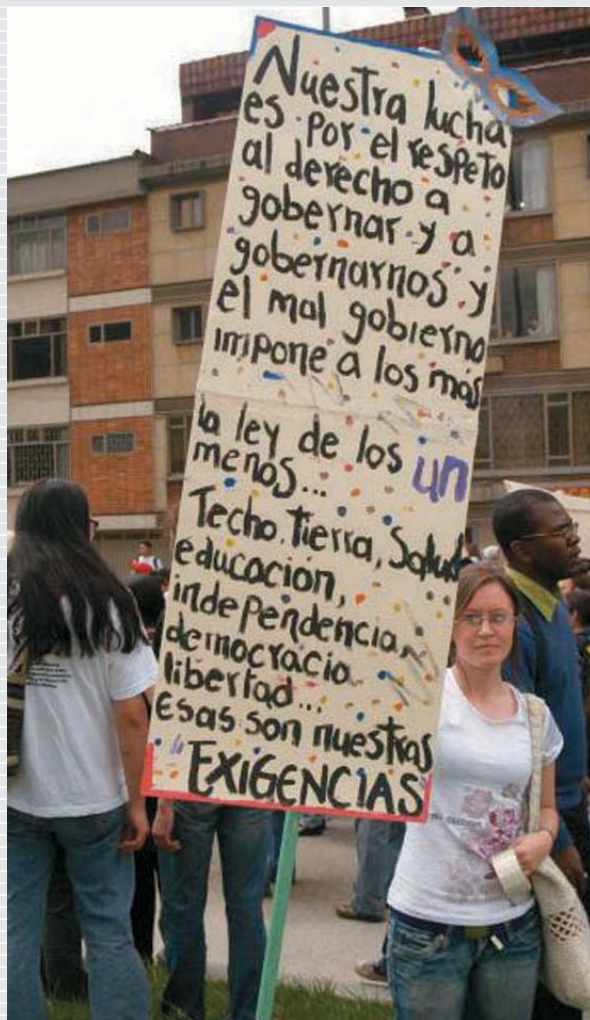 Nuestra lucha
es por el respeto
al derecho a
gobernar y a
gobernarnos y
el mal gobierno
impone a los más
la ley de los
menos... un
Techo, Tierra, Salud
educacion,
independencia,
democracia
libertad...
Esas son nuestras
EXIGENCIAS